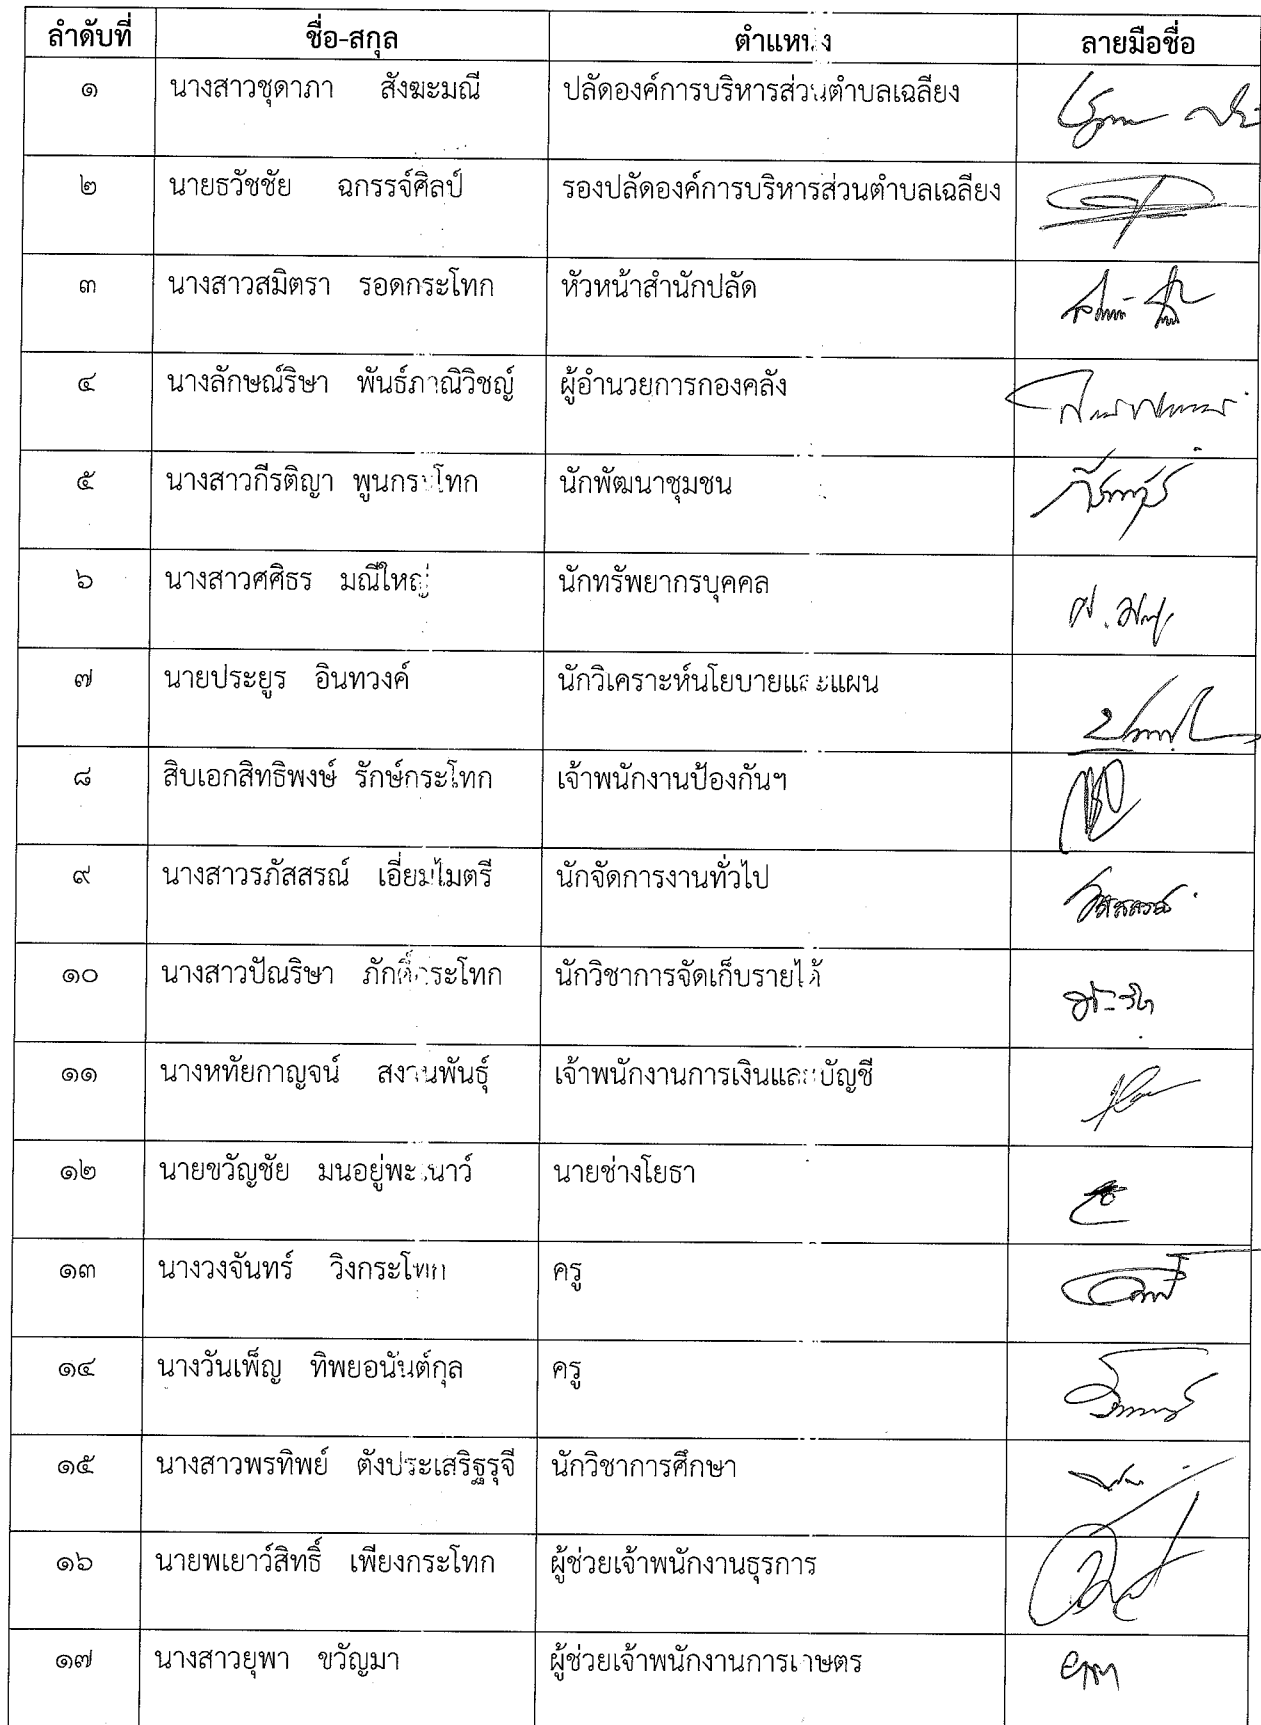 ลำดับที่ ชื่อ-สกุล ตำแหน่ง ลายมือชื่อ
๑ นางสาวชุดาภา สังฆะมณี ปลัดองค์การบริหารส่วนตำบลเฉลียง
๒ นายธวัชชัย ฉกรรจ์ศิลป์ รองปลัดองค์การบริหารส่วนตำบลเฉลียง
๓ นางสาวสมิตรา รอดกระโทก หัวหน้าสำนักปลัด
๔ นางลักษณ์ริษา พันธ์ภาณิวิชญ์ ผู้อำนวยการกองคลัง
๕ นางสาวกีรติญา พูนกระโทก นักพัฒนาชุมชน
๖ นางสาวศศิธร มณีใหญ่ นักทรัพยากรบุคคล
๗ นายประยูร อินทวงค์ นักวิเคราะห์นโยบายและแผน
๘ สิบเอกสิทธิพงษ์ รักษ์กระโทก เจ้าพนักงานป้องกันฯ
๙ นางสาวรภัสสรณ์ เอี่ยมไมตรี นักจัดการงานทั่วไป
๑๐ นางสาวปัณริษา ภักดิ์กระโทก นักวิชาการจัดเก็บรายได้
๑๑ นางหทัยกาญจน์ สงวนพันธุ์ เจ้าพนักงานการเงินและบัญชี
๑๒ นายขวัญชัย มนอยู่พะเนาว์ นายช่างโยธา
๑๓ นางวงจันทร์ วิงกระโทก ครู
๑๔ นางวันเพ็ญ ทิพยอนันต์กุล ครู
๑๕ นางสาวพรทิพย์ ตังประเสริฐรุจี นักวิชาการศึกษา
๑๖ นายพเยาว์สิทธิ์ เพียงกระโทก ผู้ช่วยเจ้าพนักงานธุรการ
๑๗ นางสาวยุพา ขวัญมา ผู้ช่วยเจ้าพนักงานการเกษตร